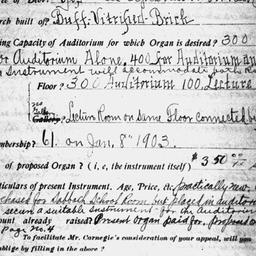 urch built of? Buff Vitrified Brick
ing Capacity of Auditorium for which Organ is desired? 300
or Auditorium Alone, 400 for Auditorium an
Instrument will accommodate both Ro
Floor? 300 Auditorium 100, Lecture
Gallery? Lecture Room on Same Floor connected b
mbership? 61. on Jan. 8th 1903.
of proposed Organ? (i, e, the instrument itself) $3 50
ticulars of present Instrument. Age, Price, &c, Practically new.
chased for Sabbath School Room, but placed in auditori
secure a suitable Instrument for the Auditorium
ount already raised? Present organ paid for, proposed o
Page No. 4
To facilitate Mr. Carnegie's consideration of your appeal, will you
oblige by filling in the above?